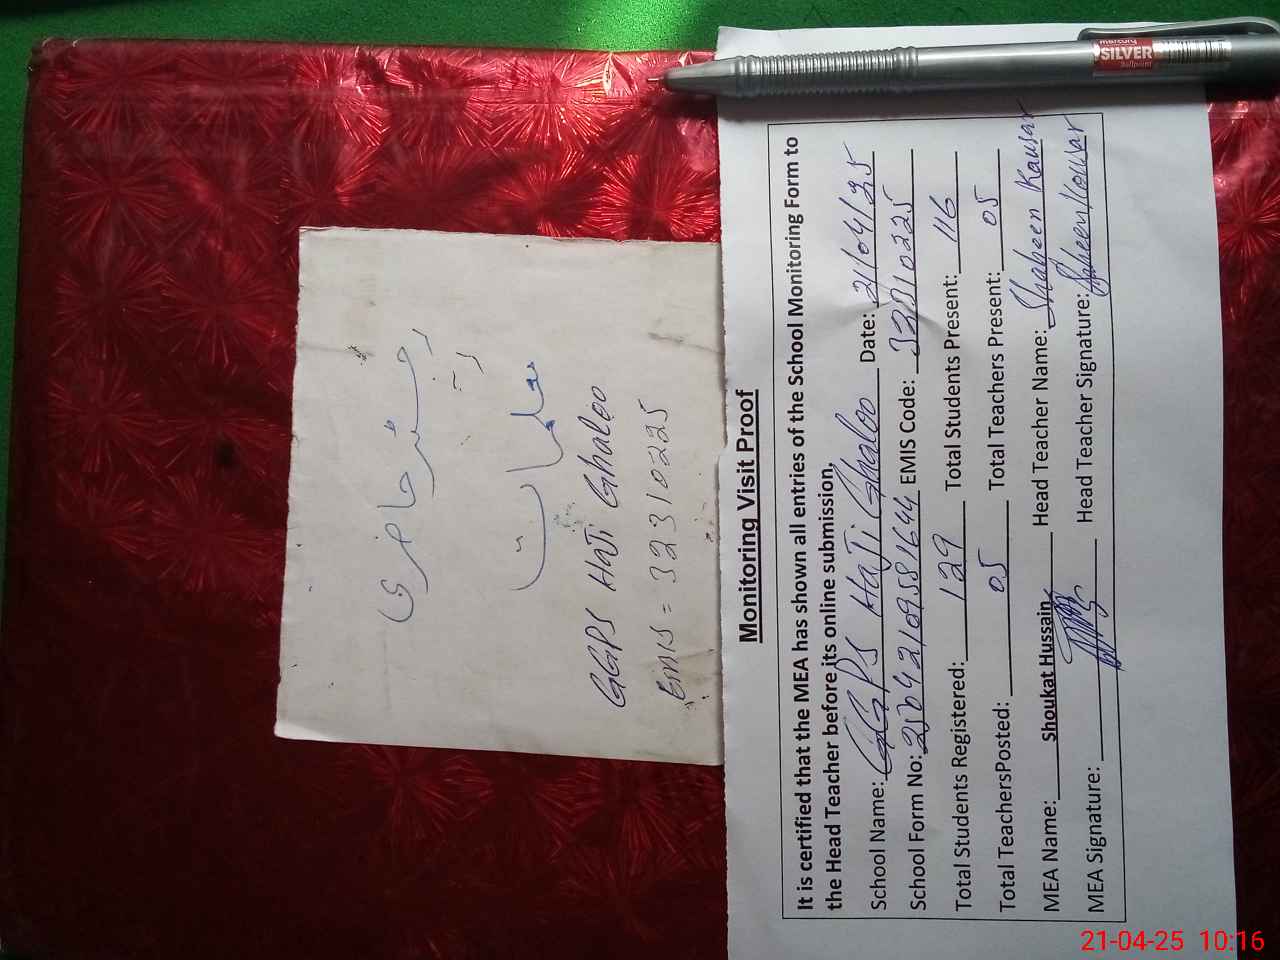 رجسٹر حاضری
معلمات
GGPS HaJi Ghaloo
EMIS = 32310225
Monitoring Visit Proof
It is certified that the MEA has shown all entries of the School Monitoring Form to
the Head Teacher before its online submission.
School Name: GGPS HaJi Ghaloo Date: 21/04/25
School Form No: EMIS Code: 32310225
Total Students Registered: 129 Total Students Present: 116
Total TeachersPosted: 05 Total Teachers Present: 05
MEA Name: Shoukat Hussain Head Teacher Name: Shaheen Kausar
MEA Signature: Head Teacher Signature: Shaheen Kousar
mercury
SILVER
Ballpoint
21-04-25 10:16